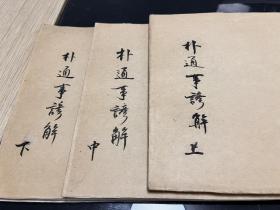 朴通事諺解 上
朴通事諺解 中
朴通事諺解 下